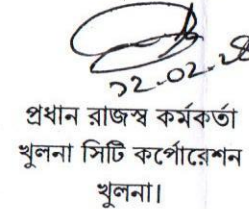 ১২.০২.২৪
প্রধান রাজস্ব কর্মকর্তা
খুলনা সিটি কর্পোরেশন
খুলনা।